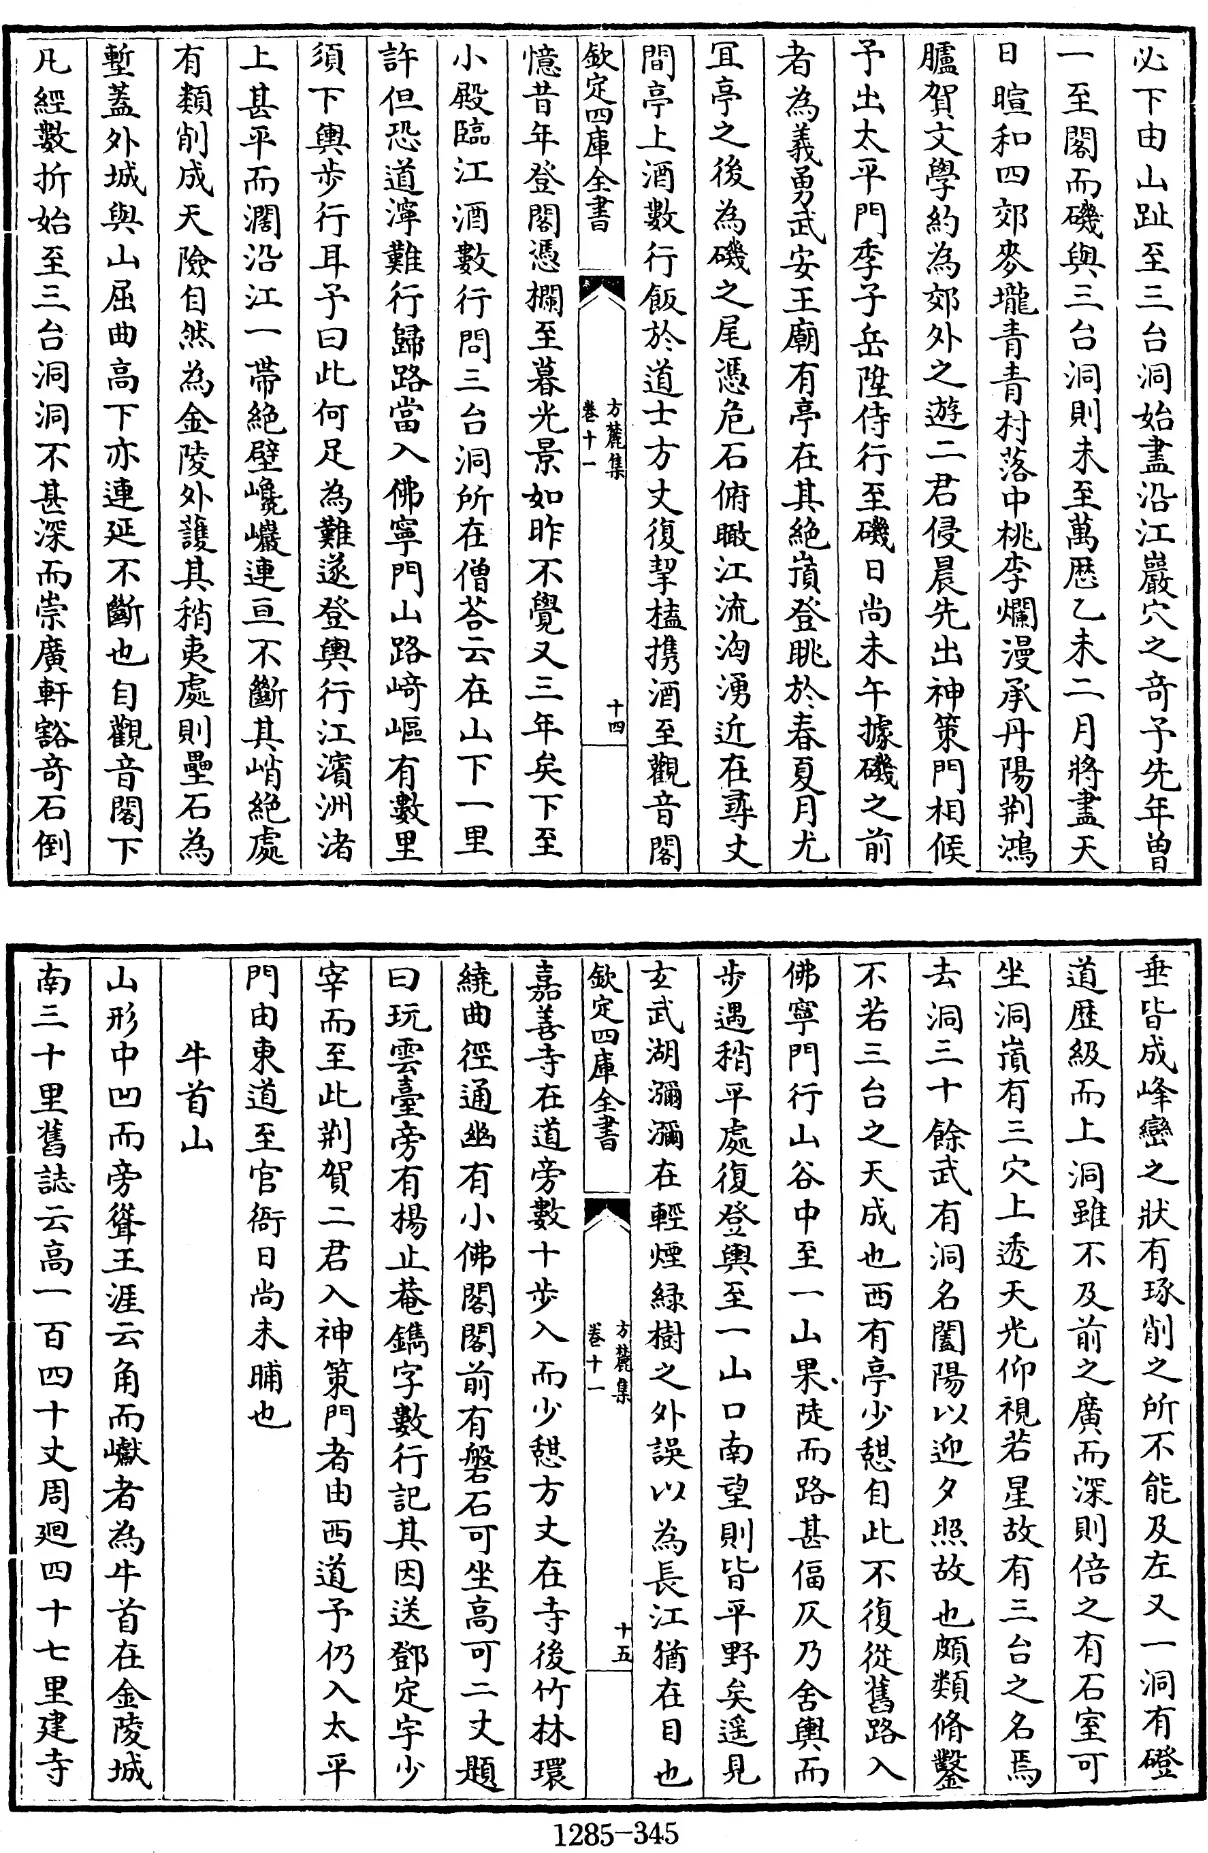 必下由山趾至三台洞始盡沿江巖穴之奇予先年曽
一至閣而磯與三台洞則未至萬厯乙未二月將盡天
日暄和四郊麥壠青青村落中桃李爛漫承丹陽荆鴻
臚賀文學約為郊外之遊二君侵晨先出神策門相候
予出太平門季子岳陞侍行至磯日尚未午據磯之前
者為義勇武安王廟有亭在其絶頂登眺於春夏月尤
宜亭之後為磯之尾憑危石俯瞰江流洶湧近在尋丈
間亭上酒數行飯於道士方丈復挈榼携酒至觀音閣
欽定四庫全書
方麓集
卷十一
十四
憶昔年登閣憑欄至暮光景如昨不覺又三年矣下至
小殿臨江酒數行問三台洞所在僧荅云在山下一里
許但恐道濘難行歸路當入佛寧門山路﨑嶇有數里
須下輿步行耳予曰此何足為難遂登輿行江濱洲渚
上甚平而濶沿江一帶絶壁巉巗連亘不斷其峭絶處
有類削成天險自然為金陵外䕶其稍夷處則壘石為
塹蓋外城與山屈曲高下亦連延不斷也自觀音閣下
凡經數折始至三台洞洞不甚深而崇廣軒豁奇石倒
垂皆成峰巒之狀有琢削之所不能及左又一洞有磴
道歴級而上洞雖不及前之廣而深則倍之有石室可
坐洞頂有三穴上透天光仰視若星故有三台之名焉
去洞三十餘武有洞名闔陽以迎夕照故也頗類脩鑿
不若三台之天成也西有亭少憇自此不復從舊路入
佛寧門行山谷中至一山果陡而路甚偪仄乃舍輿而
步遇稍平處復登輿至一山口南望則皆平野矣遥見
玄武湖瀰瀰在輕煙緑樹之外誤以為長江猶在目也
欽定四庫全書
方麓集
卷十一
十五
嘉善寺在道旁數十步入而少憇方丈在寺後竹林環
繞曲徑通幽有小佛閣閣前有磐石可坐高可二丈題
曰玩雲臺旁有楊止菴鐫字數行記其因送鄧定宇少
宰而至此荆賀二君入神策門者由西道予仍入太平
門由東道至官衙日尚未晡也
牛首山
山形中凹而旁聳王涯云角而巘者為牛首在金陵城
南三十里舊誌云高一百四十丈周廻四十七里建寺
1285-345